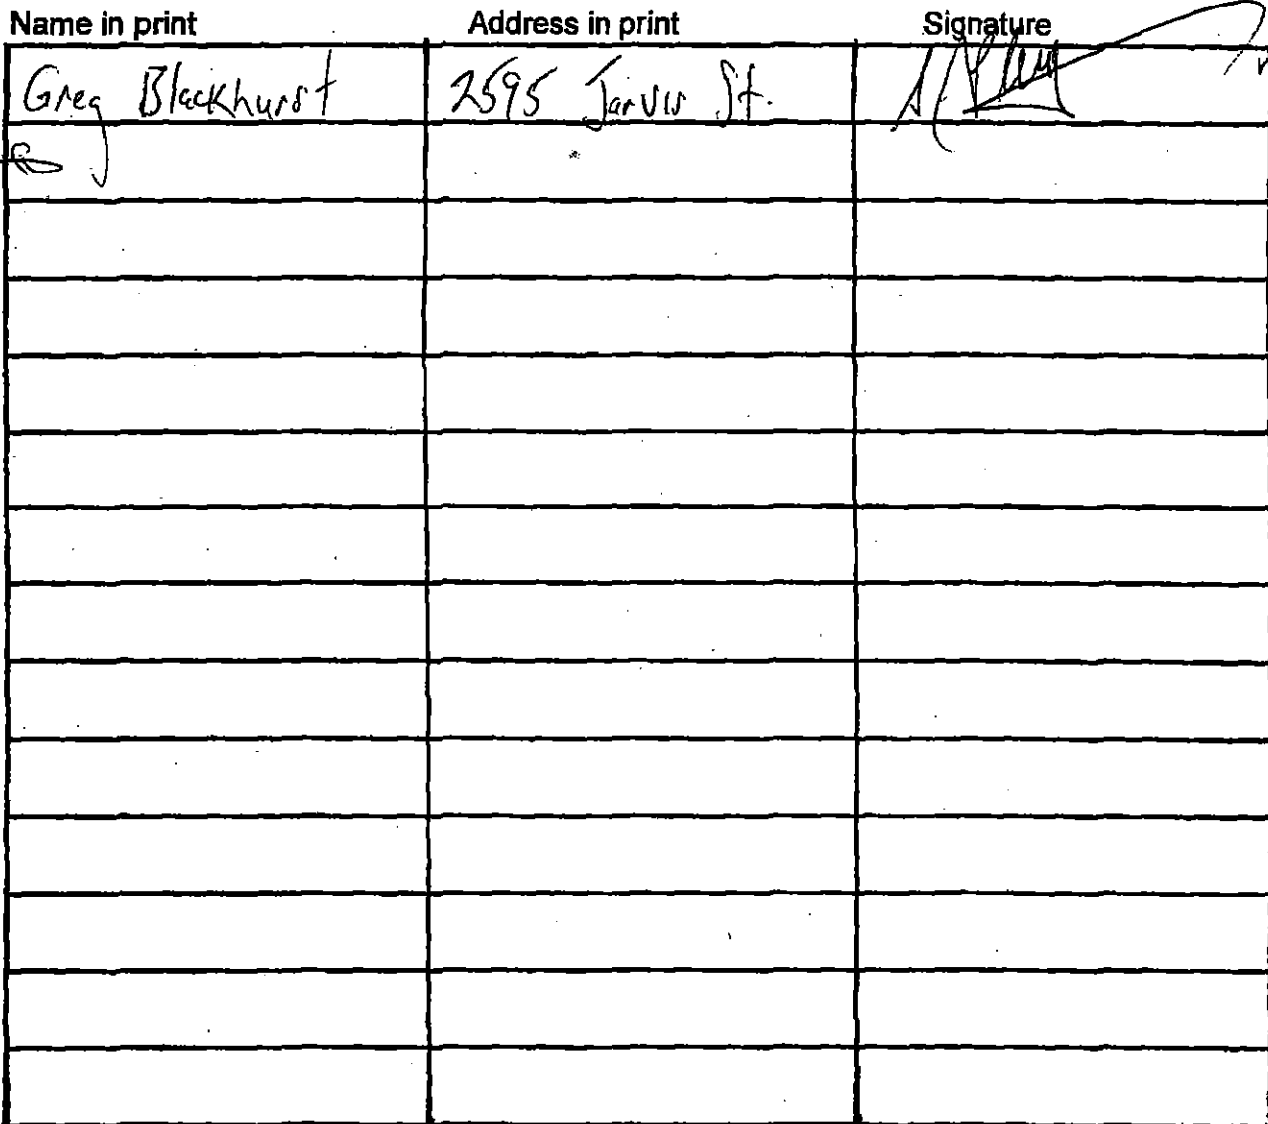 Name in print Address in print Signature
Greg Blackhurst 2595 Jarvis St.